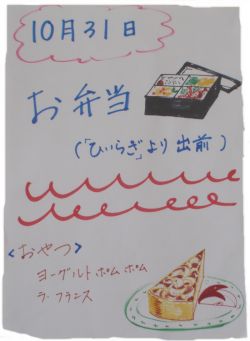 10月31日
お弁当
(「ひいらぎ」より出前)
<おやつ>
ヨーグルトポムポム
ラ・フランス